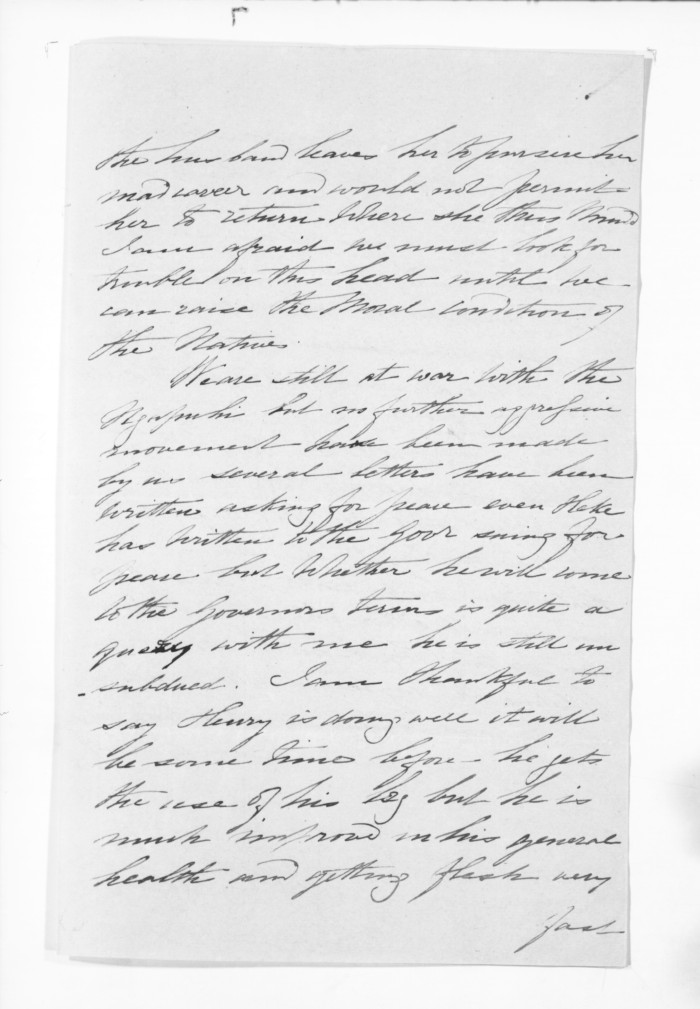 the husband leaves her to pursue her
mad career and would not permit
her to return where she thus
I am afraid we must look for
trouble on this head until we
can raise the Moral condition of
the Natives.
We are still at war with the
Ngapuhi but no further aggressive
movement have been made
by us several letters have been
written asking for peace even Heke
has written to the Govr suing for
peace but whether he will come
to the Governors terms is quite a
query with me he is still un
subdued. I am thankful to
say Henry is doing well it will
be some time before he gets
the use of his leg but he is
much improvd in his general
health and getting flesh very
fast